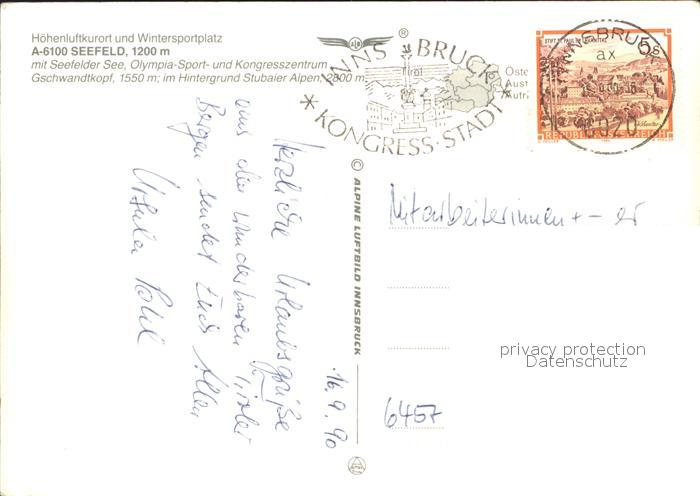 Höhenluftkurort und Wintersportplatz
A-6100 SEEFELD, 1200 m
mit Seefelder See, Olympia-Sport- und Kongresszentrum
Gschwandtkopf, 1550 m; im Hintergrund Stubaier Alpen, 2800 m
INNS BRUCK ®
Tirol
* KONGRESS·STADT *
Öste
Aust
Autri
INNSBRUCK
ax
6020
STIFT ST. PAUL IM LAVANTTAL
5s
REPUBLIK ÖSTERREICH
© ALPINE LUFTBILD INNSBRUCK
16.9.90
Herzliche Urlaubsgrüße
aus den wunderbaren Tiroler
Bergen sendet Euch Allen
Ursula Pohl
Mitarbeiterinnen + - er
6457
privacy protection
Datenschutz